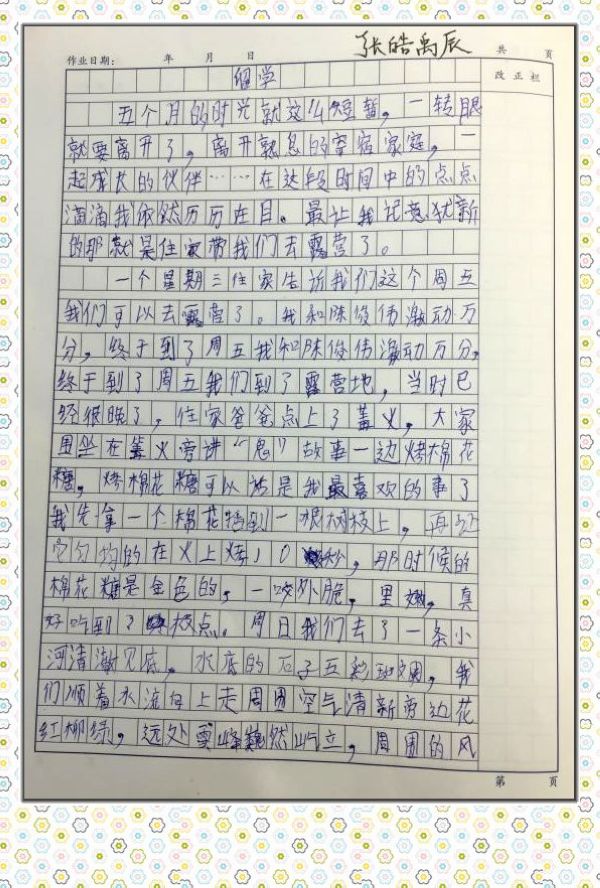 张皓禹辰
作业日期： 年 月 日 共 页
改正栏
留学
五个月的时光就这么短暂，一转眼
就要离开了，离开熟息的寄宿家庭，一
起成长的伙伴……在这段时间中的点点
滴滴我依然历历在目。最让我记忆犹新
的那就是住家带我们去露营了。
一个星期三住家告诉我们这个周五
我们可以去露营了。我和陈俊伟激动万
分，终于到了周五我和陈俊伟激动万分，
终于到了周五我们到了露营地，当时已
经很晚了，住家爸爸点上了篝火，大家
围坐在篝火旁讲“鬼”故事一边烤棉花
糖，烤棉花糖可以说是我最喜欢的事了
我先拿一个棉花糖到一根树枝上，再让
它匀均的在火上烤10秒，那时候的
棉花糖是金色的，一咬外脆，里嫩，真
好吃到了极点。周日我们去了一条小
河清澈见底，水底的石子五彩斑斓，我
们顺着水流向上走周围空气清新旁边花
红柳绿，远处雪峰巍然屹立，周围的风
第 页